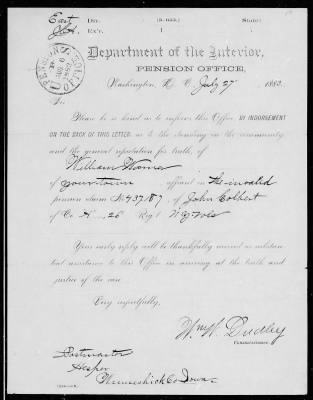 East Div.
Ex'r.
State:
Department of the Interior,
PENSION OFFICE,
Washington, D. C., July 27, 1883.
Sir:
Please be so kind as to inform this Office, BY INDORSEMENT
ON THE BACK OF THIS LETTER, as to the standing in the community,
and the general reputation for truth, of
William
of your town, affiant in the invalid
pension claim No 437,187, of John Colbert
of Co. H - 26 Reg't N.Y. Vols
Your early reply will be thankfully received as substan-
tial assistance to this Office in arriving at the truth and
justice of the case.
Very respectfully,
Wm W. Dudley
Commissioner.
Postmaster
Hesper
Winneshiek Co Iowa